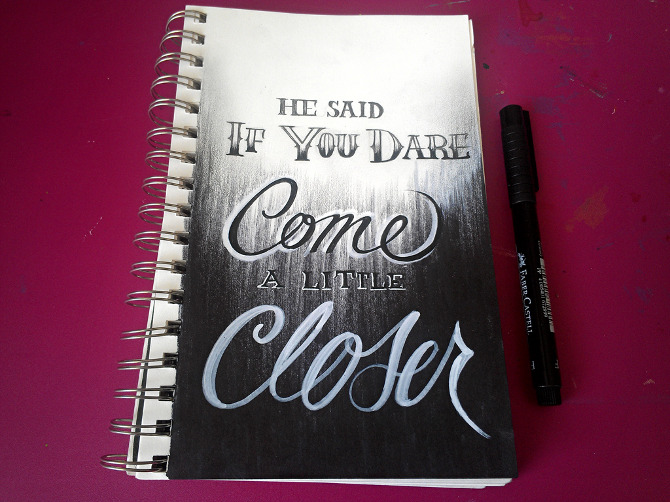 HE SAID
IF YOU DARE
Come
A LITTLE
Closer
FABER CASTELL